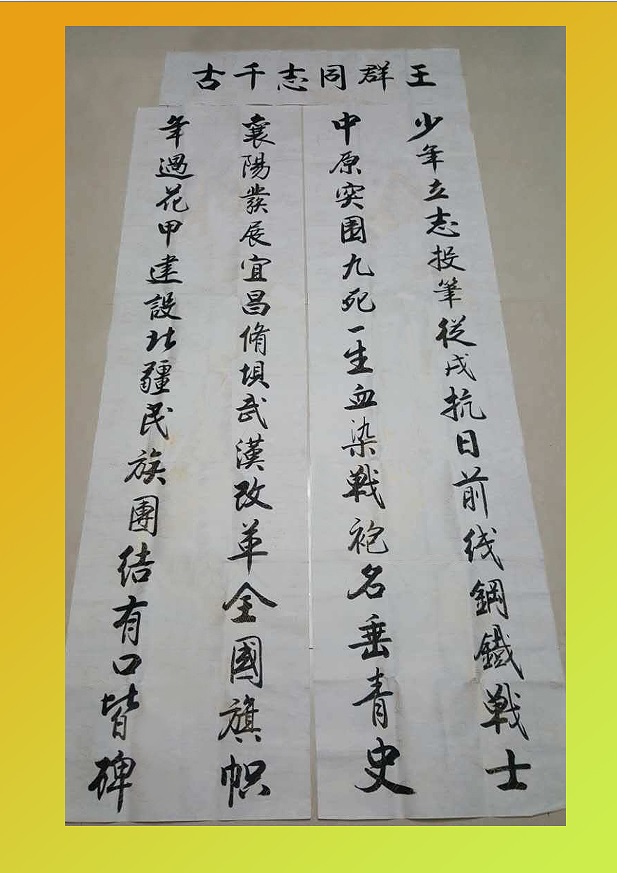 王群同志千古
少年立志投筆從戎抗日前线鋼鐵戰士
中原突围九死一生血染戰袍名垂青史
襄陽發展宜昌脩壩武漢改革全國旗帜
年過花甲建設北疆民族團结有口皆碑